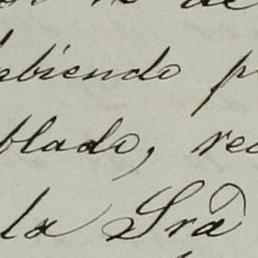 abiendo p
blado, re
la Sra